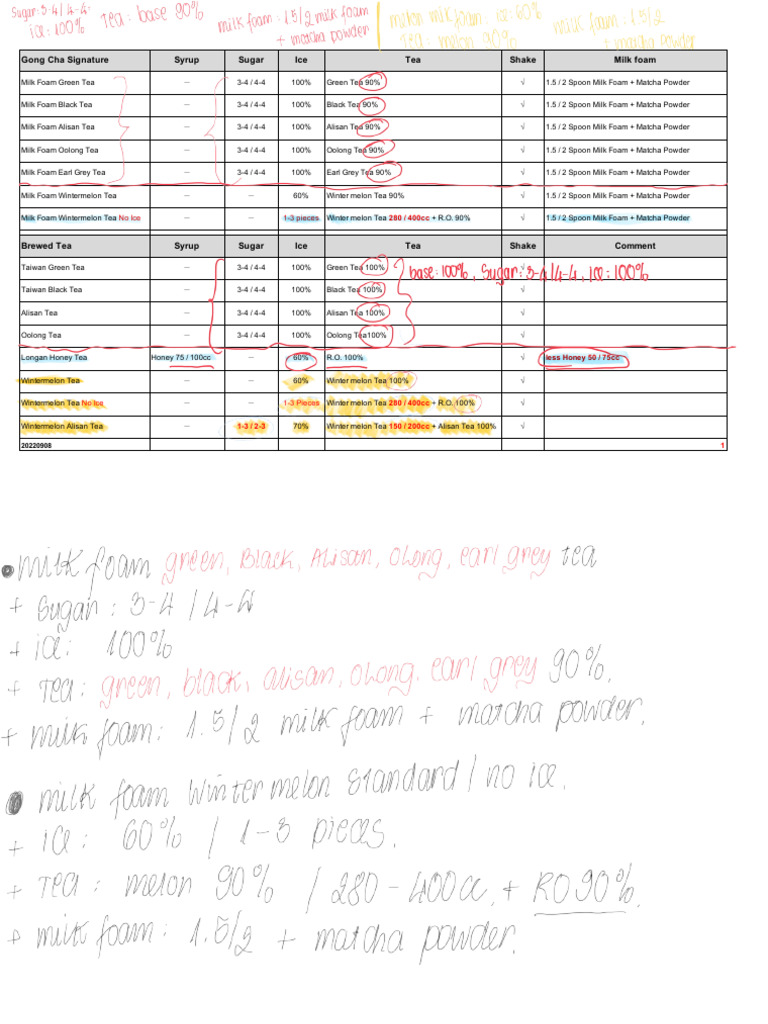 Sugar: 3-4/4-4
ice: 100%
tea: base 90%
milk foam: 1.5/2 milk foam
+ matcha powder
melon milk foam: ice: 60%
tea: melon 90%
milk foam: 1.5/2
+ matcha powder
Gong Cha Signature Syrup Sugar Ice Tea Shake Milk foam
Milk Foam Green Tea — 3-4 / 4-4 100% Green Tea 90% √ 1.5 / 2 Spoon Milk Foam + Matcha Powder
Milk Foam Black Tea — 3-4 / 4-4 100% Black Tea 90% √ 1.5 / 2 Spoon Milk Foam + Matcha Powder
Milk Foam Alisan Tea — 3-4 / 4-4 100% Alisan Tea 90% √ 1.5 / 2 Spoon Milk Foam + Matcha Powder
Milk Foam Oolong Tea — 3-4 / 4-4 100% Oolong Tea 90% √ 1.5 / 2 Spoon Milk Foam + Matcha Powder
Milk Foam Earl Grey Tea — 3-4 / 4-4 100% Earl Grey Tea 90% √ 1.5 / 2 Spoon Milk Foam + Matcha Powder
Milk Foam Wintermelon Tea — — 60% Winter melon Tea 90% √ 1.5 / 2 Spoon Milk Foam + Matcha Powder
Milk Foam Wintermelon Tea No Ice — — 1-3 pieces Winter melon Tea 280 / 400cc + R.O. 90% √ 1.5 / 2 Spoon Milk Foam + Matcha Powder
Brewed Tea Syrup Sugar Ice Tea Shake Comment
Taiwan Green Tea — 3-4 / 4-4 100% Green Tea 100% √
base: 100%, Sugar: 3-4/4-4, ice: 100%
Taiwan Black Tea — 3-4 / 4-4 100% Black Tea 100% √
Alisan Tea — 3-4 / 4-4 100% Alisan Tea 100% √
Oolong Tea — 3-4 / 4-4 100% Oolong Tea100% √
Longan Honey Tea Honey 75 / 100cc — 60% R.O. 100% √ less Honey 50 / 75cc
Wintermelon Tea — — 60% Winter melon Tea 100% √
Wintermelon Tea No Ice — — 1-3 Pieces Winter melon Tea 280 / 400cc + R.O. 100% √
Wintermelon Alisan Tea — 1-3 / 2-3 70% Winter melon Tea 150 / 200cc + Alisan Tea 100% √
20220908 1
• milk foam green, Black, Alisan, Olong, earl grey tea
+ Sugar: 3-4 / 4-4
+ ice: 100%
+ Tea: green, black, alisan, olong, earl grey 90%.
+ milk foam: 1.5/2 milk foam + matcha powder.
• milk foam winter melon standard / no ice.
+ ice: 60% / 1-3 pieces.
+ Tea: melon 90% / 280-400cc + RO 90%.
+ milk foam: 1.5/2 + matcha powder.